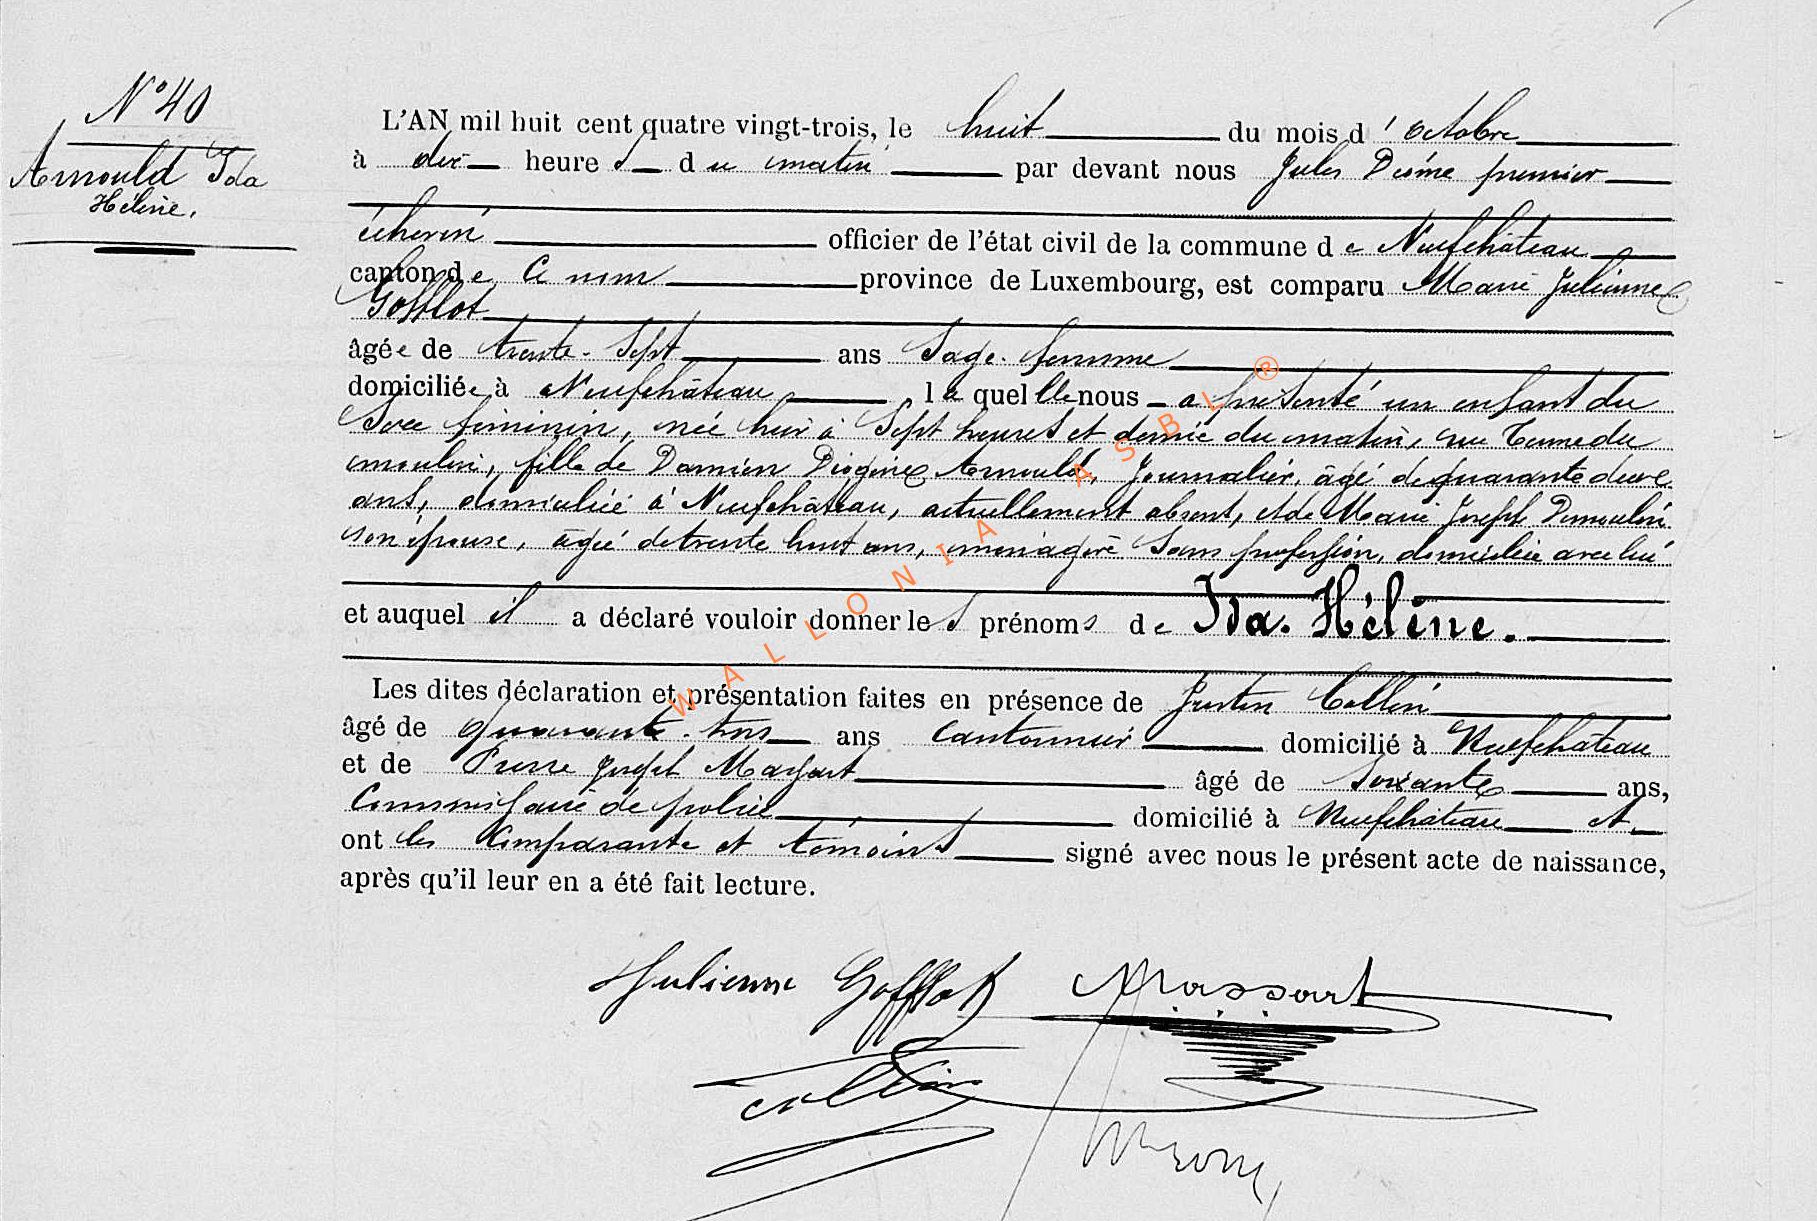 N° 40
Arnould Ida
Hélène.
L'AN mil huit cent quatre vingt-trois, le huit du mois d'octobre
à dix heures du matin par devant nous Jules premier
échevin officier de l'état civil de la commune de Neufchâteau
canton de ce nom province de Luxembourg, est comparu Marie Julienne
Gofflot
âgée de trente-sept ans Sage-femme
domiciliée à Neufchâteau laquelle nous a présenté un enfant du
sexe féminin, née hier à sept heures et demie du matin, rue du
moulin, fille de Damien Diogène Arnould, journalier, âgé de quarante deux
ans, domicilié à Neufchâteau, actuellement absent, et de Marie Joseph Dumoulin
son épouse, âgée de trente huit ans, ménagère sans profession, domiciliée avec lui
et auquel il a déclaré vouloir donner les prénoms de Ida Hélène.
Les dites déclaration et présentation faites en présence de Justin Collin
âgé de quarante-trois ans cantonnier domicilié à Neufchâteau
et de Pierre Joseph Massart âgé de soixante ans,
Commissaire de police domicilié à Neufchâteau et
ont les comparante et témoins signé avec nous le présent acte de naissance,
après qu'il leur en a été fait lecture.
Julienne Gofflot Massart
Collin
WALLONIA ASBL ®